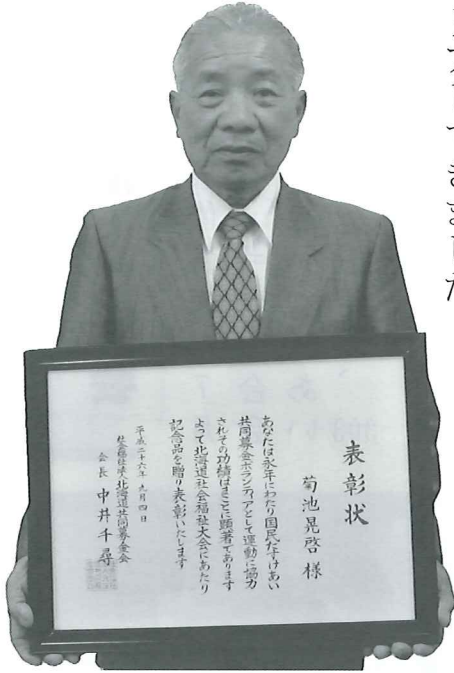 表彰状
菊池晃啓 様
あなたは永年にわたり国民たすけあい
共同募金ボランティアとして運動に協力
されその功績はまことに顕著であります
よって北海道社会福祉大会にあたり
記念品を贈り表彰いたします
平成二十六年九月四日
社会福祉法人 北海道共同募金会
会長 中井千尋